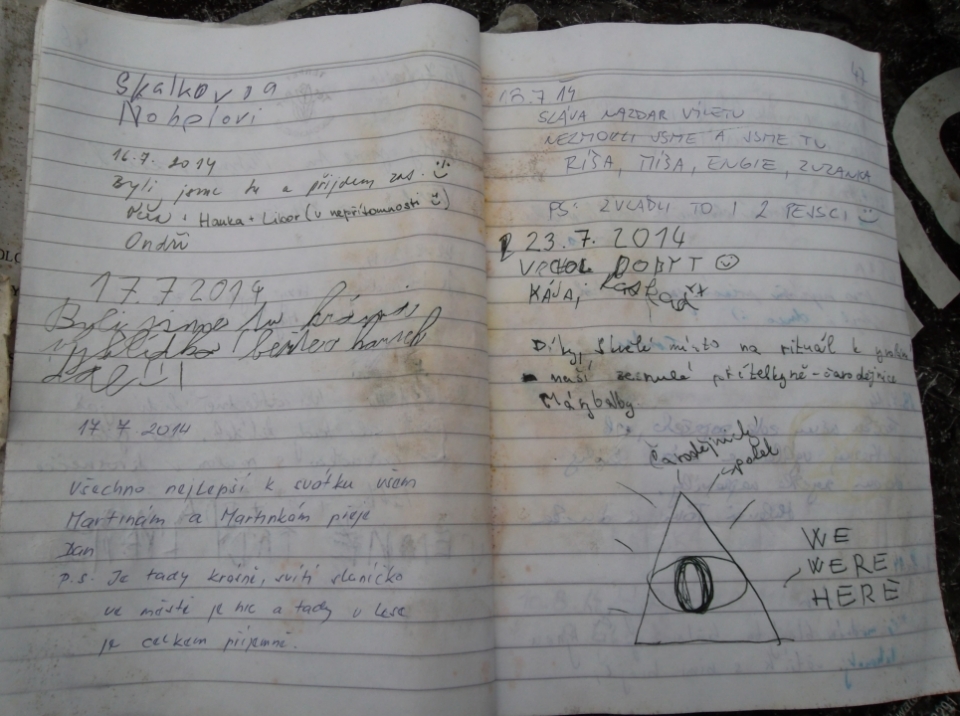 Skalkova
Nohelovi
16.7. 2014
Byli jsme tu a přijdem zas.
+ Hanka + Libor (v nepřítomnosti)
Ondři
17.7 2014
Byli jsme tu krásná
vyhlídka
17 7. 2014
Všechno nejlepší k svátku všem
Martinám a Martinkám přeje
Dan
p.s. Je tady krásně, svítí slaníčko
ve městě je hic a tady v lese
je celkem příjemně.
47
18.7 14
SLÁVA NAZDAR VÝLETU
NEZMOKLI JSME A JSME TU
RÍŠA, MÍŠA, ENGIE, ZUZANKA
PS: ZVLÁDLI TO I 2 PEJSCI
23.7. 2014
VRCHOL DOBYT
KÁJA,
Díky, skvělé místo na rituál k
naší zesnulé přítelkyně-čarodejnice
Čarodějnický
spolek
WE
WERE
HERE